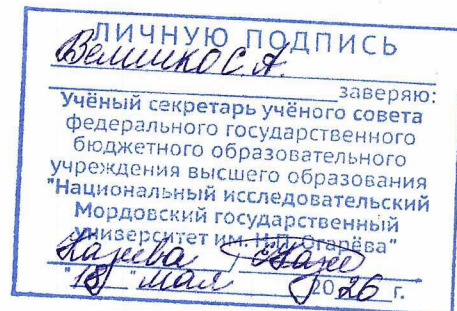 ЛИЧНУЮ ПОДПИСЬ
Величко С.А.
заверяю:
Учёный секретарь учёного совета
федерального государственного
бюджетного образовательного
учреждения высшего образования
"Национальный исследовательский
Мордовский государственный
университет им. Н.П. Огарёва"
"18" мая 2026 г.